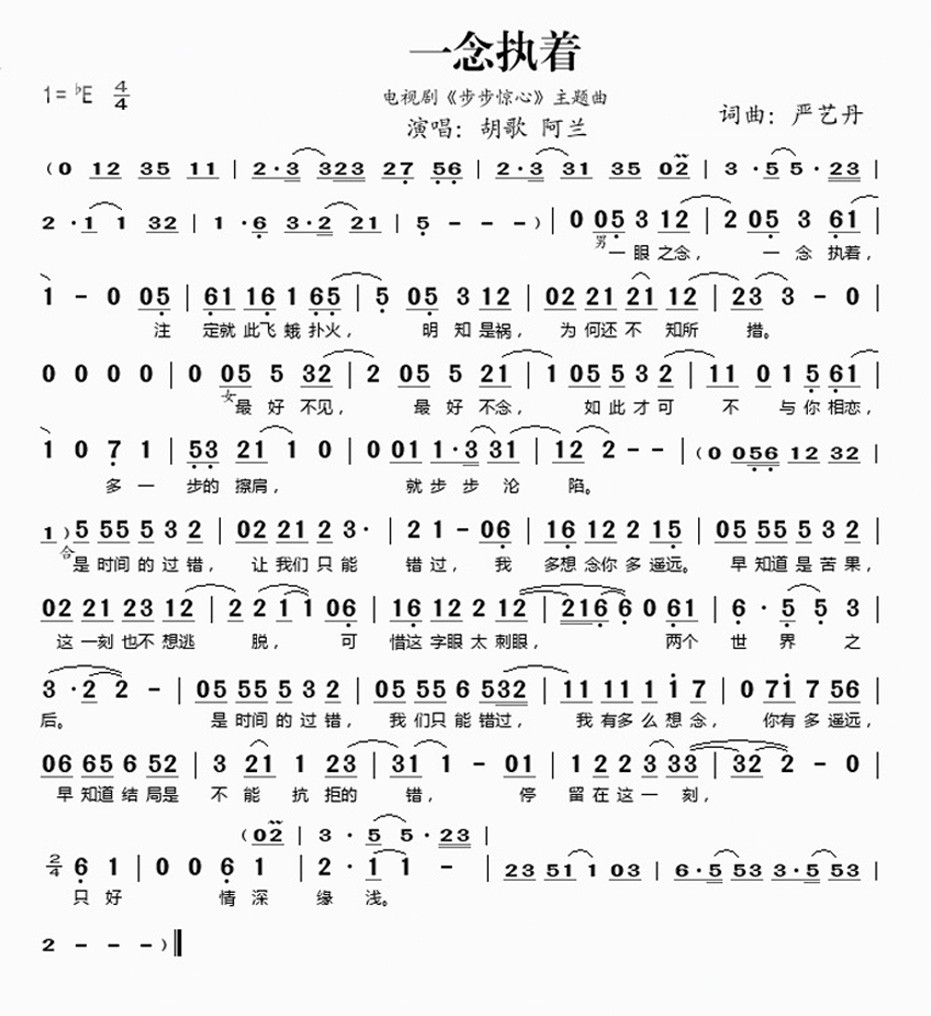 一念执着
1=♭E 4/4
电视剧《步步惊心》主题曲
演唱：胡歌 阿兰
词曲：严艺丹
(0 12 35 11 | 2·3 323 27 56 | 2·3 31 35 02 | 3 ·5 5·23 |
2 ·1 1 32 | 1 ·6 3·2 21 | 5 - - - ) | 0 05 3 12 | 2 05 3 61 |
男 一眼之念， 一念执着，
1 - 0 05 | 61 16 1 65 | 5 05 3 12 | 02 21 21 12 | 23 3 - 0
注 定就此飞蛾扑火， 明知是祸， 为何还不 知所 措。
0 0 0 0 | 0 05 5 32 | 2 05 5 21 | 1 05 5 32 | 11 0 1 5 61 |
女 最好不见， 最好不念， 如此才可 不 与你相恋，
1 0 7 1 | 53 21 1 0 | 0 01 1·3 31 | 12 2 - - | (0 056 12 32 |
多一 步的擦肩， 就步步沦 陷。
1 ) 5 55 5 3 2 | 02 21 2 3· | 2 1 - 06 | 16 12 2 15 | 05 55 5 3 2 |
合 是时间的过错， 让我们只能 错过， 我 多想念你多遥远。 早知道是苦果，
02 21 23 12 | 2 2 1 1 06 | 16 12 2 12 | 216 6 0 61 | 6 · 5 5 3
这一刻也不想逃 脱， 可 惜这字眼太刺眼， 两个 世界之
3 ·2 2 - | 05 55 5 3 2 | 05 55 6 532 | 11 11 1 1 7 | 0 71 7 56 |
后。 是时间的过错， 我们只能错过， 我有多么想念， 你有多遥远，
06 65 6 52 | 3 21 1 23 | 31 1 - 01 | 1 2 2 3 33 | 32 2 - 0 |
早知道结局是 不能抗拒的 错， 停 留在这一刻，
(02 | 3 · 5 5 ·23 |
2/4 6 1 | 0 0 6 1 | 2 ·1 1 - | 23 51 1 03 | 6·5 53 3·5 53 |
只好 情深 缘浅。
2 - - - )‖